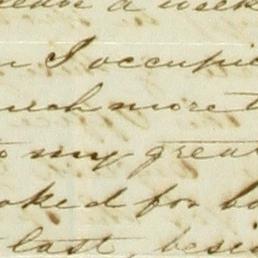 a week
I occupie
much more t
to my grea
oked for bo
last, besi